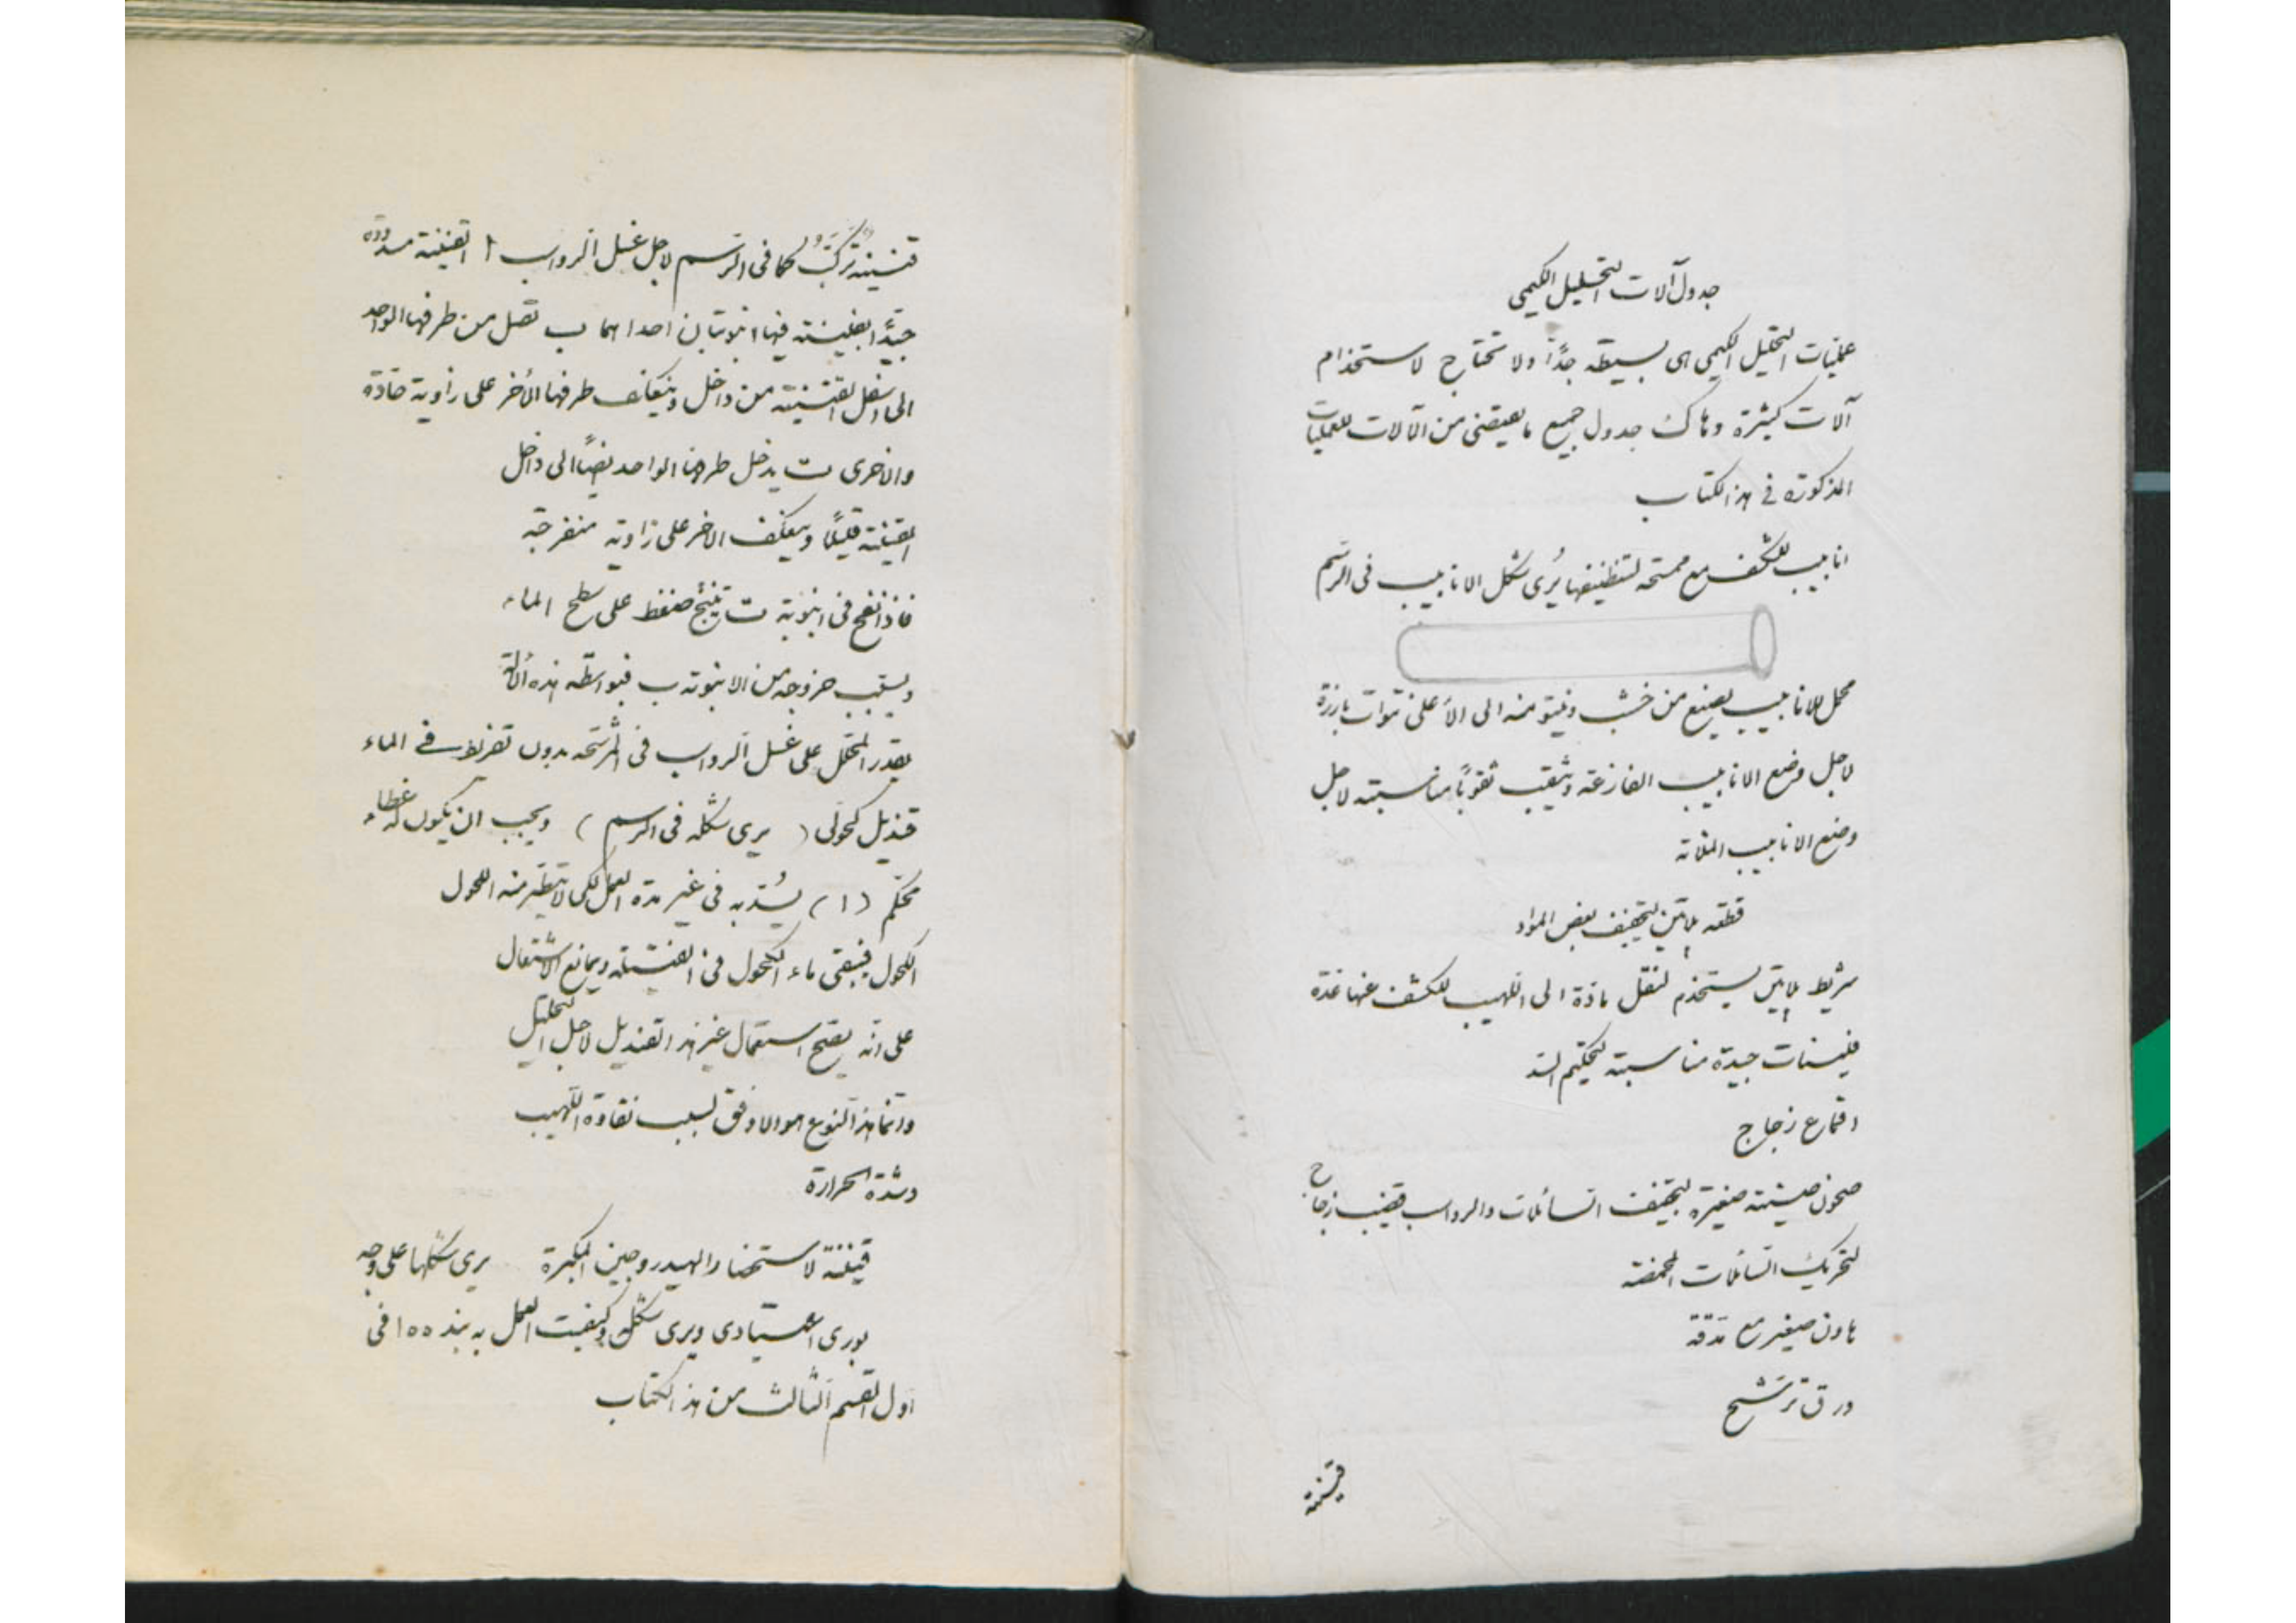 جدول آلات التحليل الكيمى
عمليات التحليل الكيمى هى بسيطه جدًّا ولا تحتاج لاستخدام
آلات كثيرة وهاك جدول جميع ما يقتضى من الآلات للعمليات
المذكورة فى هذا الكتاب
انابيب للكشف مع ممسحه لتنظيفها يُرى شكل الانابيب فى الرسم
محمل للانابيب يصنع من خشب وينتو منه الى الأعلى نتوات بارزة
لاجل وضع الانابيب الفارغة ويثقب ثقوبًا مناسبته لاجل
وضع الانابيب الملانه
قطعه بلاتين لتجفيف بعض المواد
شريط بلاتين يستخدم لنقل مادة الى اللهيب للكشف عنها
فلينات جيدة مناسبة لتحكيم السد
اقماع زجاج
صحون صينيته صغيرة لتجفيف السائلات والرواسب قضيب زجاج
لتحريك السائلات المحمضة
هاون صغير مع مدقة
ورق ترشيح
قنينة
قنينة تركب كما فى الرسم لاجل غسل الرواسب ا القنينة مسدودة
جيّدًا بفلينته فيها انبوبتان احداهما ب تصل من طرفها الواحد
الى اسفل القنينة من داخل وينعكف طرفها الأخر على زاوية حادة
والاخرى ت يدخل طرفها الواحد ايضًا الى داخل
القنينة قليلًا وينعكف الاخر على زاوية منفرجة
فاذا نفخ فى انبوبة ت ينتج ضغط على سطح الماء
ويسبب خروجه من الانبوبة ب فبواسطة هذه الآلة
يقدر المحلل على غسل الرواسب فى المرشحه بدون تفريط فى الماء
قنديل كحولى ( يرى شكله فى الرسم ) ويجب ان يكون له غطاء
محكم (ا) يُسدّ به فى غير مدة العمل لكى لا يتطير منه الكحول
الكحول فيبقى ماء الكحول فى الفتيلة ويمانع الاشتعال
على انّه يصح استعمال غير هذا القنديل لاجل التحليل
وانّما هذا النوع هو الاوفق لسبب نقاوة اللهيب
وشدة الحرارة
قنينة لاستحضار الهيدروجين المكبرة يرى شكلها على وجه
بورى اعتيادى ويرى شكله وكيفيت العمل به بند ١٥٥ فى
اول القسم الثالث من هذا الكتاب